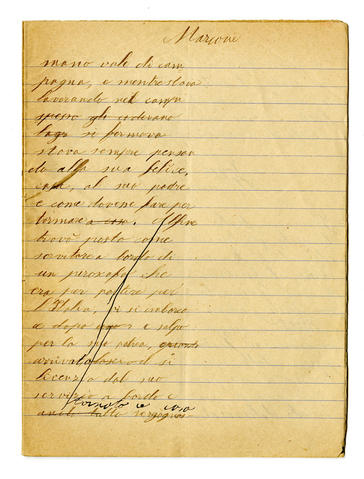 Marconi
mano vole di cam
pagna, e mentre stava
lavorando nel campo
spesso gli cadevano
si fermava
stava sempre pensan
do alla sua felice
casa, al suo padre
e come dovene fare per
tornare a casa.
trovò posto come
servitore a bordo di
un piroscafo che
era per partire per
l'Italia, e si imbarco
e dopo e salpo
per la sua
arrivato
licenzio dal suo
servizio a bordo e
tornato a casa
ando tutto vergognos